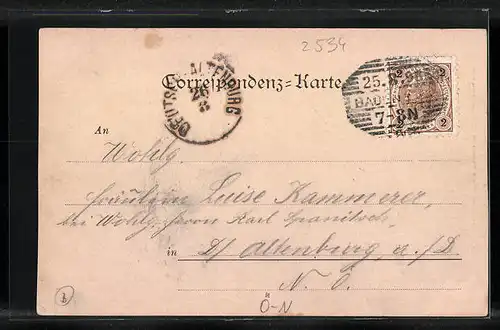 2534
Correspondenz-Karte
DEUTSCH-ALTENBURG
26
8
25. 8. 9
BADEN
7-8N
2 2
2 2
An
Wohlg.
Fräulein Luise Kammerer,
bei Wohlg. Herrn Karl
in D/ Altenburg a./D.
N. Ö.
Ö-N